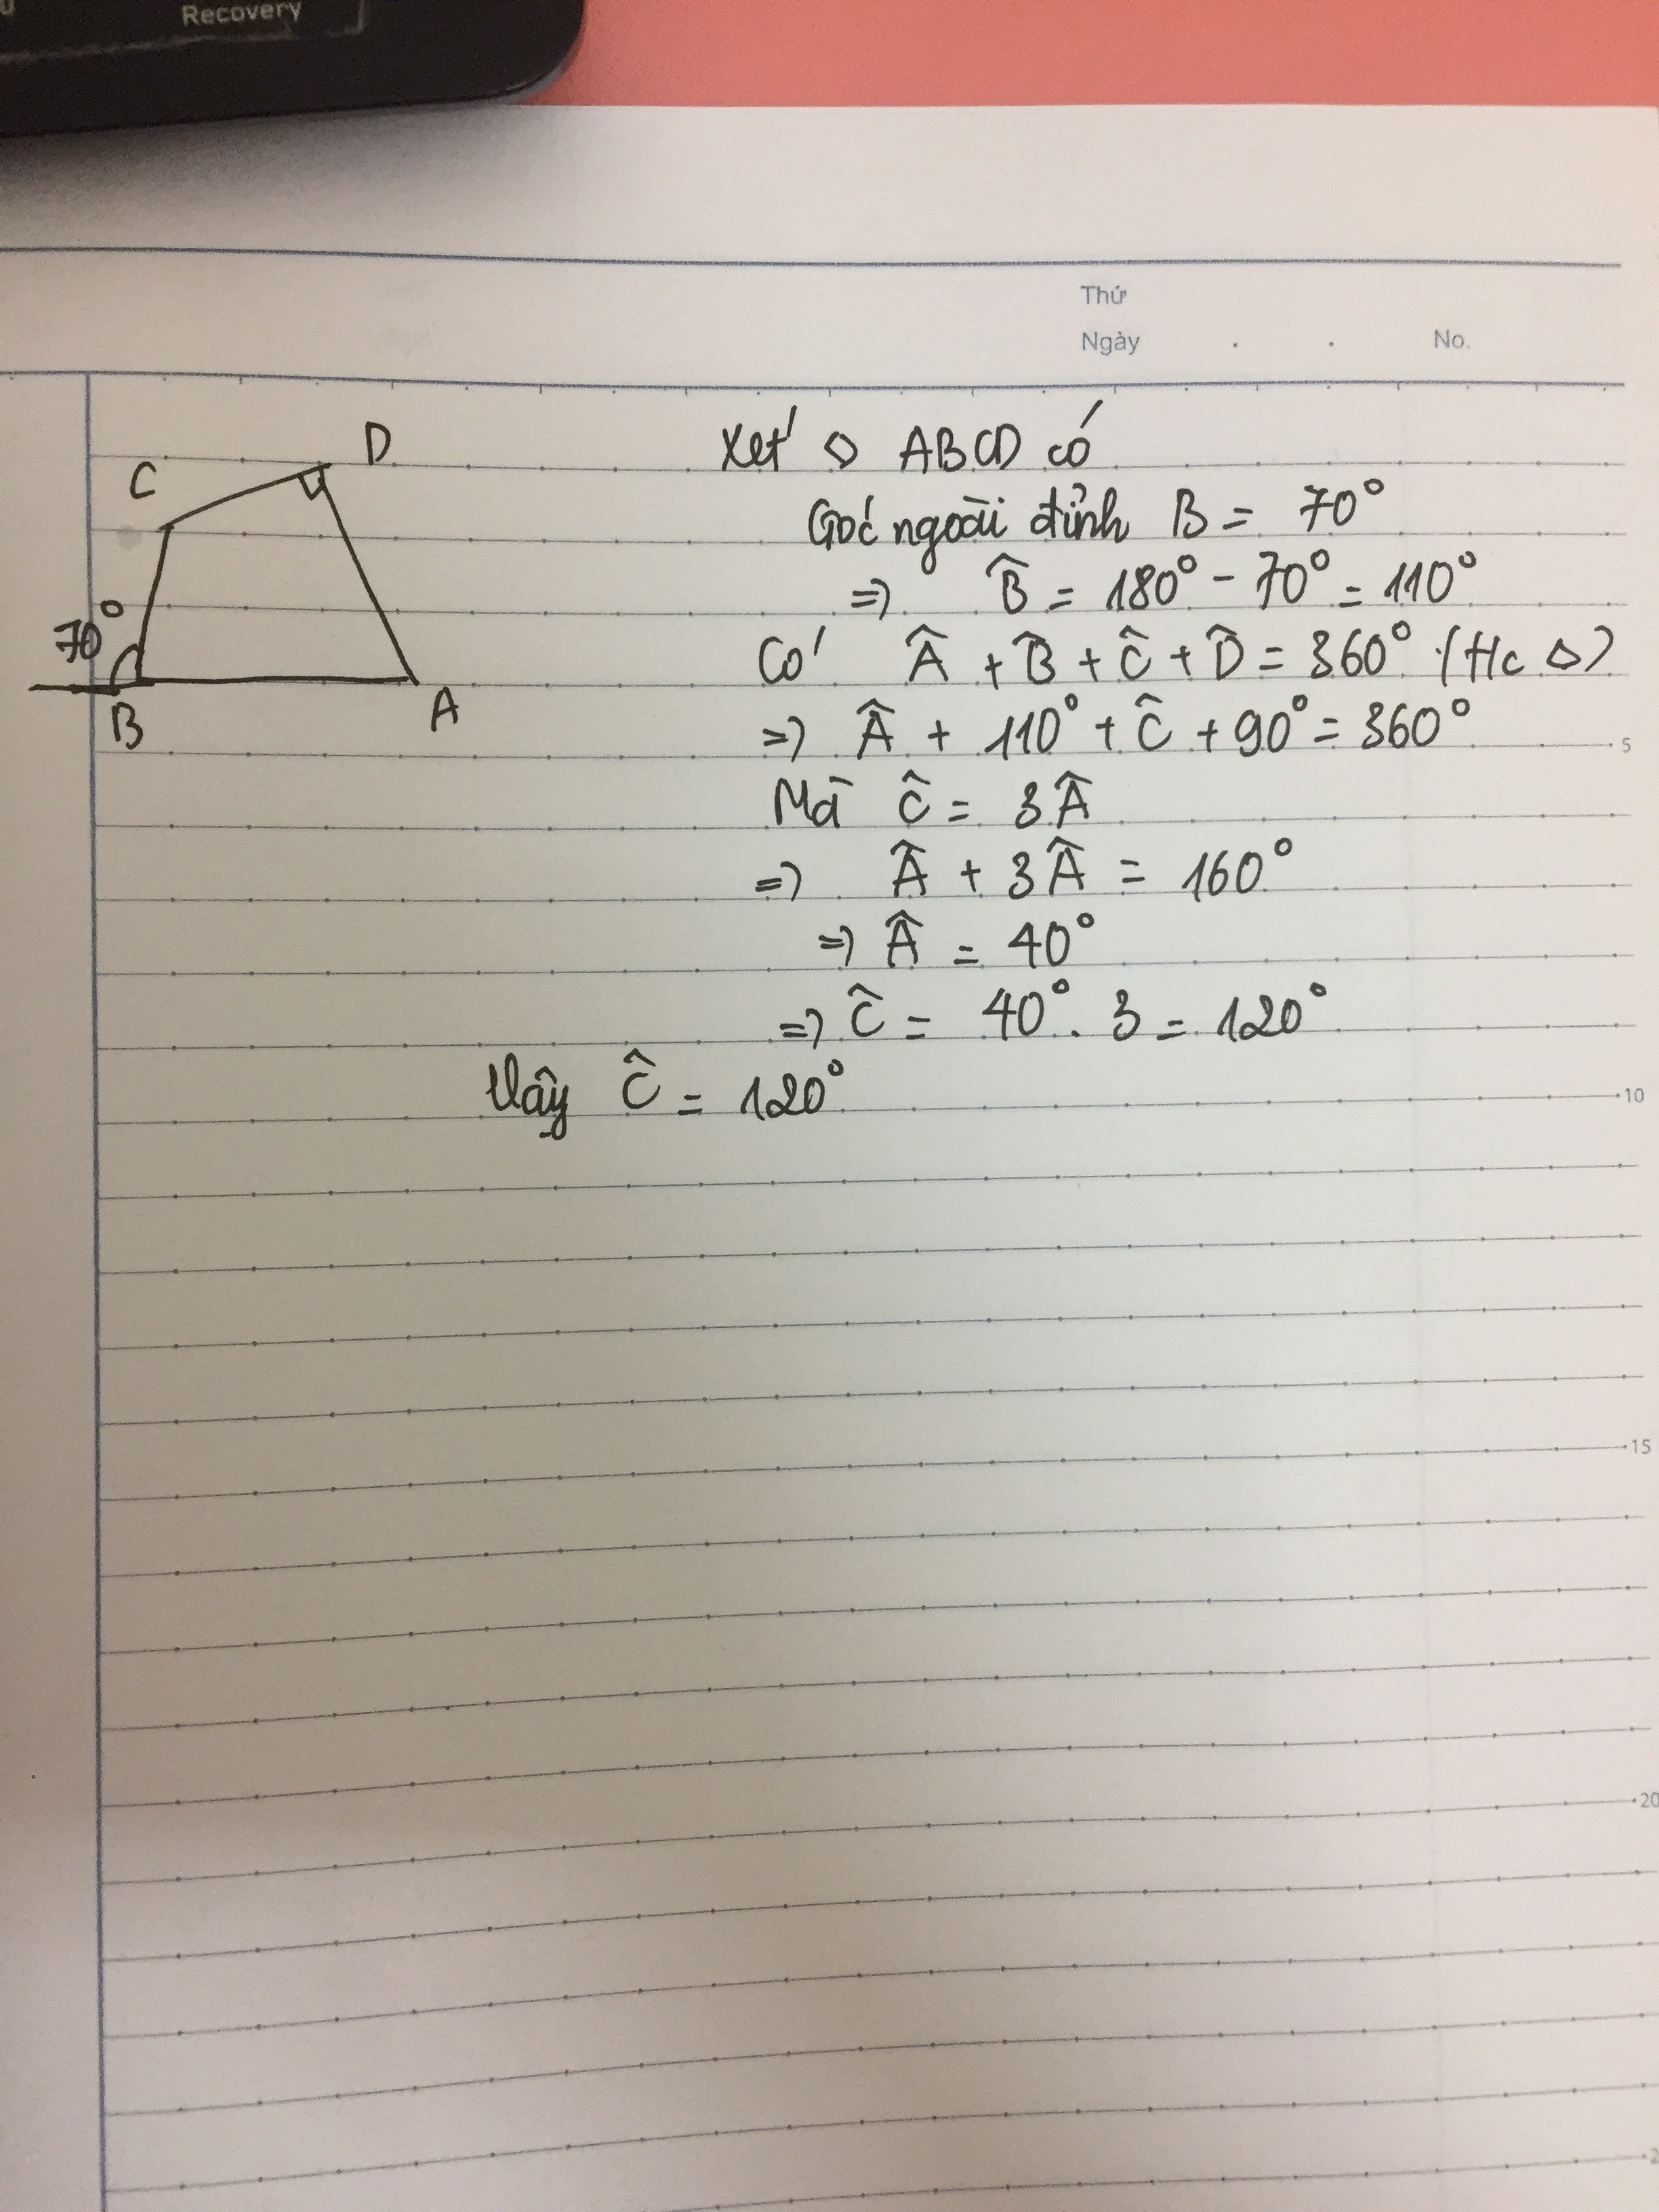 Recovery
Thứ
Ngày . . No.
C D
70°
B A
Xét ◇ ABCD có
Góc ngoài đỉnh B = 70°
=> B̂ = 180° - 70° = 110°
Có Â + B̂ + Ĉ + D̂ = 360° (Hc ◇)
=> Â + 110° + Ĉ + 90° = 360°
5
Mà Ĉ = 3Â
=> Â + 3Â = 160°
=> Â = 40°
=> Ĉ = 40° . 3 = 120°
Vậy Ĉ = 120°
10
15
20